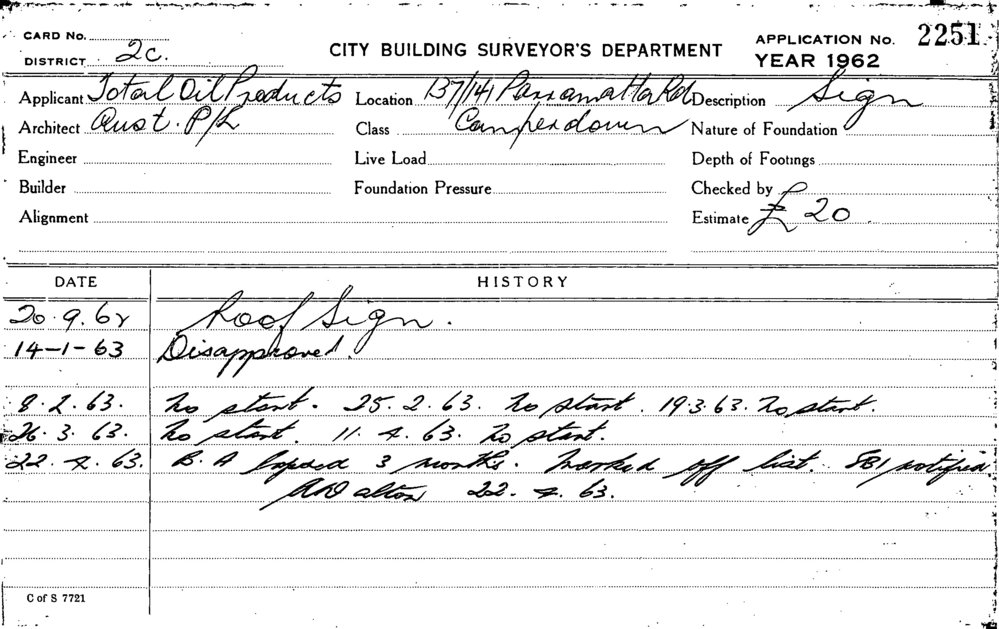 CARD No.
DISTRICT 2c.
CITY BUILDING SURVEYOR'S DEPARTMENT
APPLICATION No. 2251
YEAR 1962
Applicant Total Oil Products Location 137/141 Parramatta Rd Description Sign
Architect Aust. P/L Class Camperdown Nature of Foundation
Engineer Live Load Depth of Footings
Builder Foundation Pressure Checked by
Alignment Estimate £ 20
DATE HISTORY
20.9.62 Roof Sign.
14-1-63 Disapproved.
8.2.63. No start. 25.2.63. No start. 19.3.63. No start.
26.3.63. No start. 11.4.63. No start.
22.4.63. B.A lapsed 3 months. Marked off list. SBI notified
22.4.63.
C of S 7721